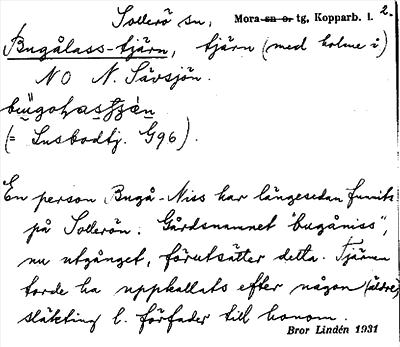 Sollerö sn, Mora sn or tg, Kopparb. l. 2.
Bugålass-tjärn, tjärn (med holme i)
NO N. Sävsjön.
(= Lusbodtj. G96).
En person Bugå-Niss har längesedan funnits
på Sollerön. Gårdsnamnet "bugåniss",
nu utgånget, förutsätter detta. Tjärnen
torde ha uppkallats efter någon (äldre)
släkting l. förfader till honom.
Bror Lindén 1931